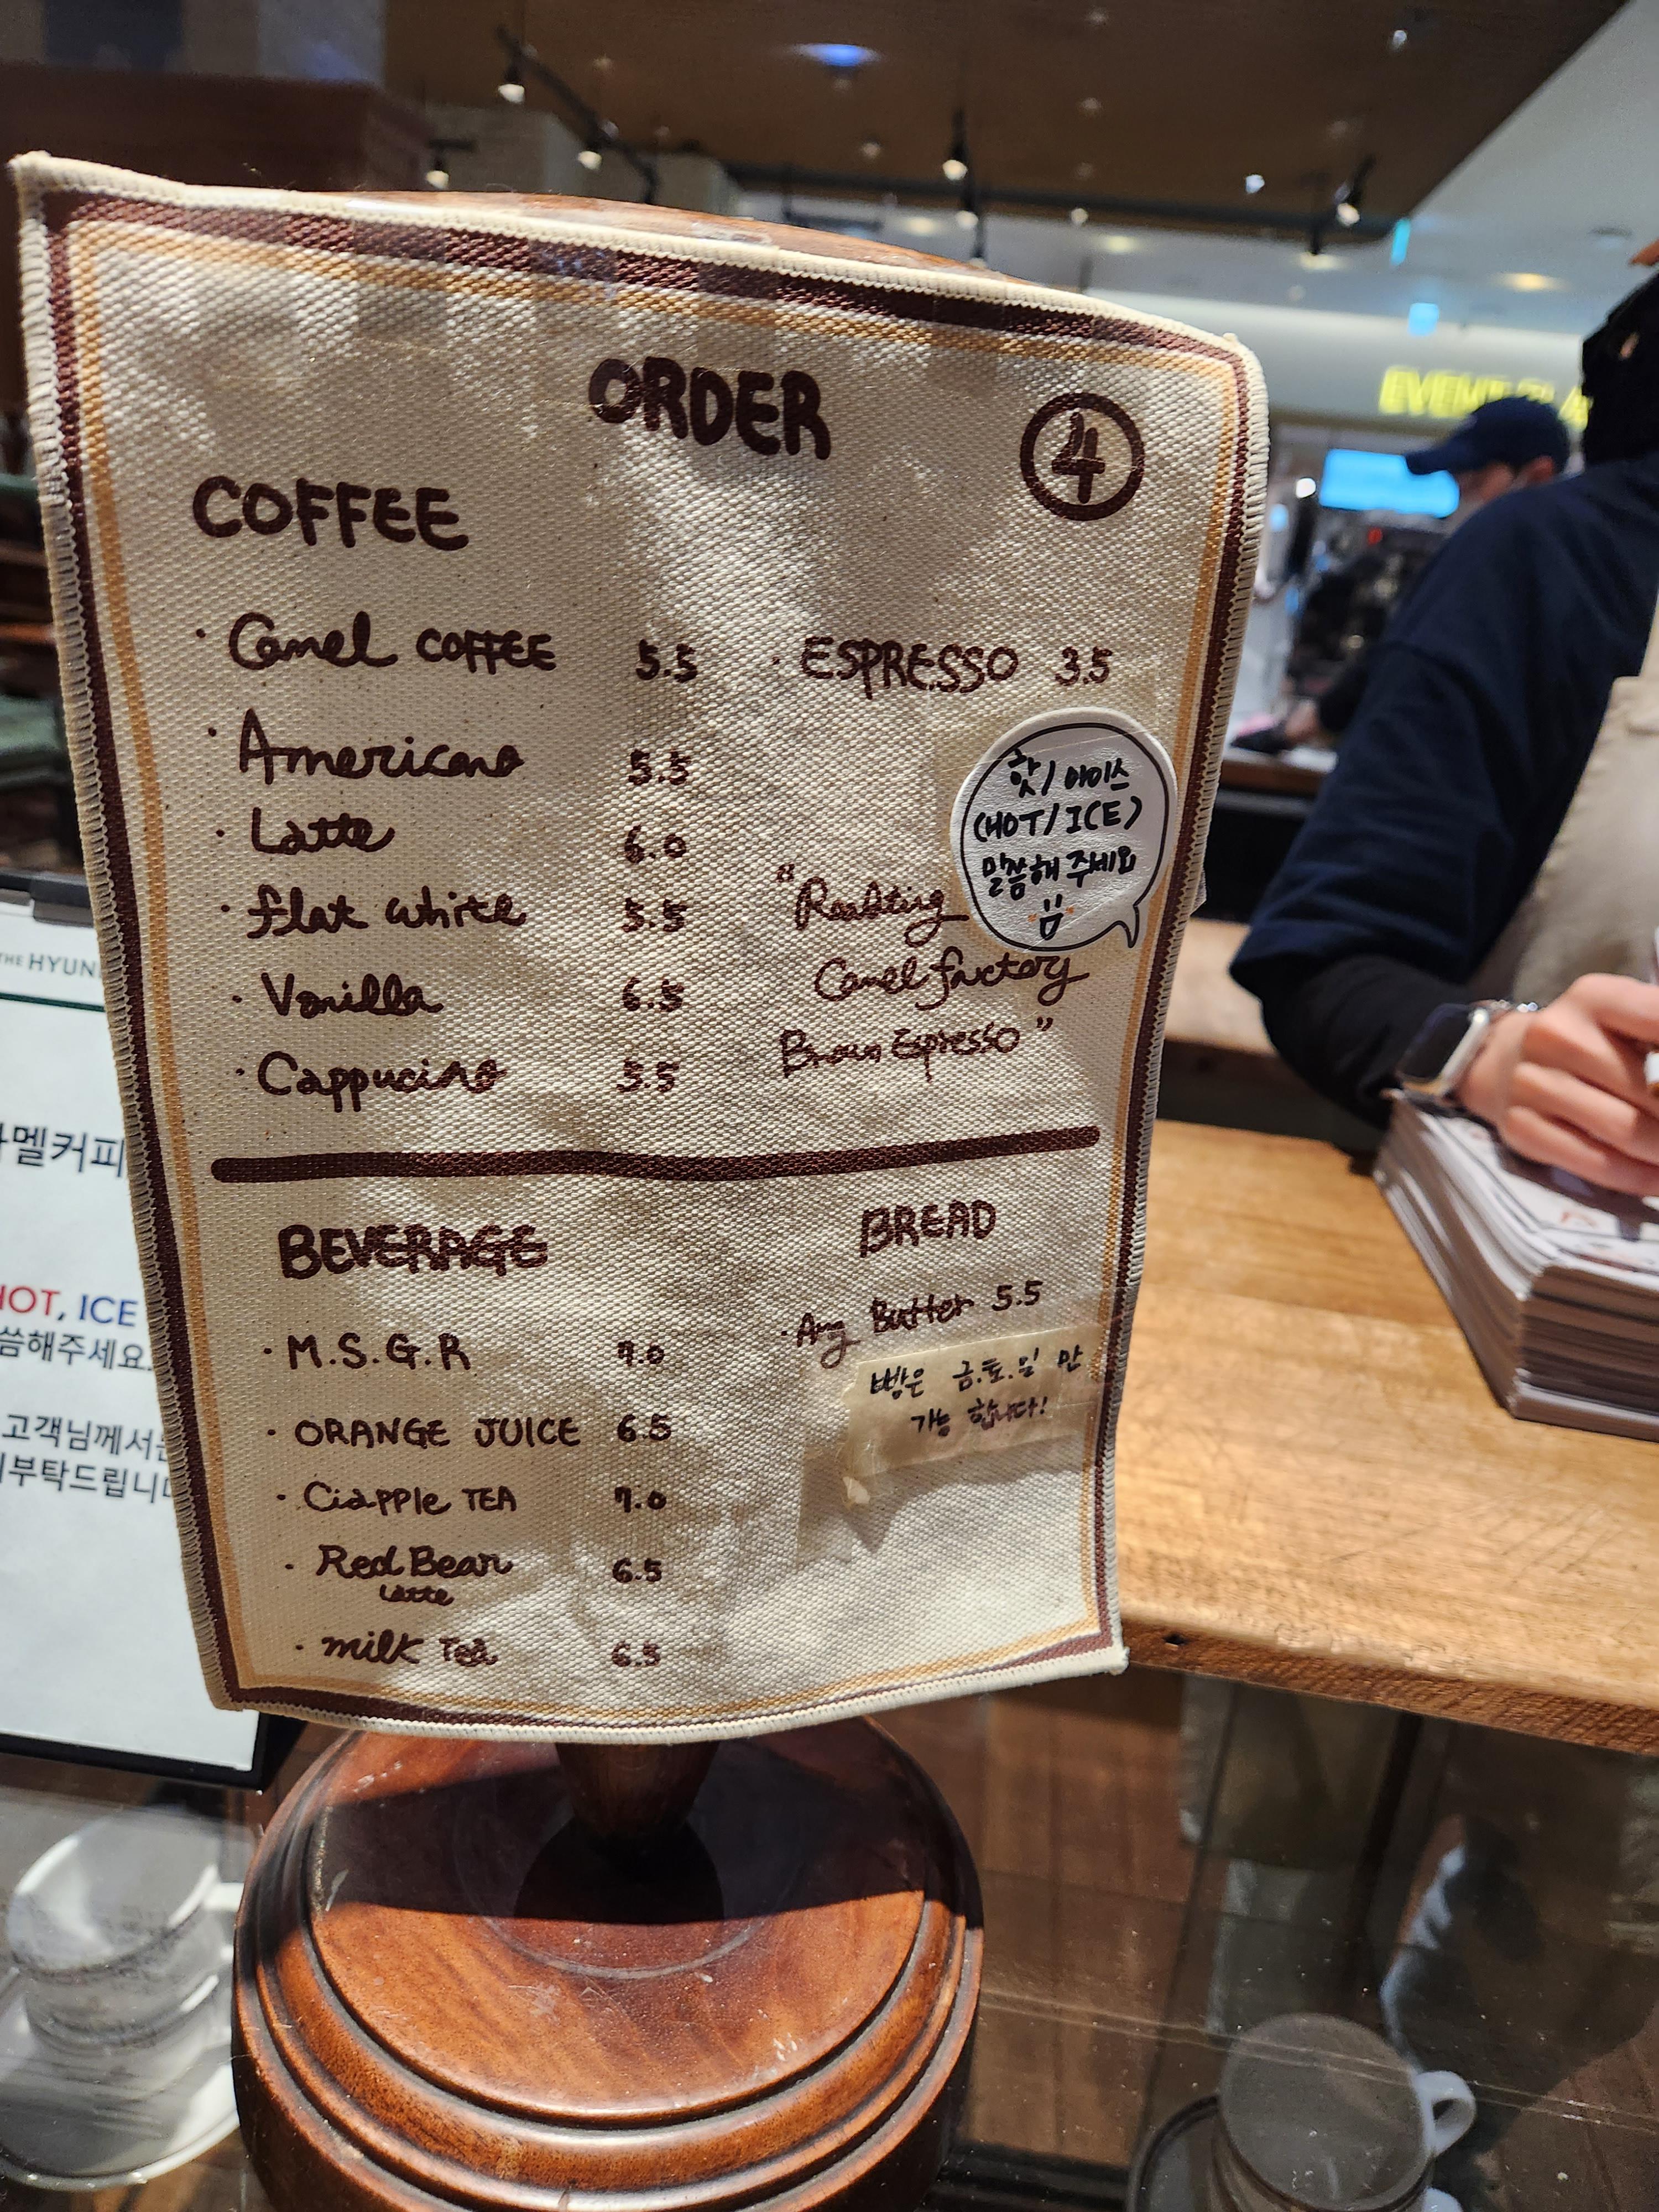 ORDER
4
COFFEE
· Camel COFFEE 5.5
· ESPRESSO 3.5
· Americano 5.5
· Latte 6.0
· flat white 5.5
· Vanilla 6.5
· Cappucino 5.5
핫/아이스
(HOT/ICE)
말씀해 주세요
"Roasting
Camel factory
Brown Espresso"
BEVERAGE
· M.S.G.R 7.0
· ORANGE JUICE 6.5
· Ciapple TEA 7.0
· Red Bean 6.5
Latte
· milk Tea 6.5
BREAD
· Ang Butter 5.5
빵은 금.토.일 만
가능 합니다!
THE HYUN
멜커피
HOT, ICE
씀해주세요.
고객님께서는
부탁드립니다
EVENT